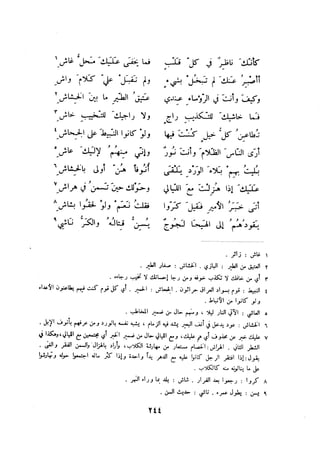 كأنك ناظر في كل قلب فما يخفى عليك محل غاش ١
أأصبر عنك لم تبخل بشيء ولم تقبل علي كلام واش
وكيف وأنت في الرؤساء عندي عتيق الطير ما بين الخشاش ٢
فما خاشيك للتكذيب راج ولا راجيك للتخييب خاش ٣
تطاعن كل خيل كنت فيها ولو كانوا النبيط على الجحاش ٤
أرى الناس الظلام وأنت نور وإني منهم لإليك عاش ٥
بليت بهم بلاء الورد يلقى أنوفا هن أولى بالخشاش ٦
عليك إذا هزلت مع الليالي وحولك حين تسمن في هراش ٧
أتى خبر الأمير فقيل كروا فقلت نعم ولو لحقوا بشاش ٨
يقودهم إلى الهيجا لجوج يسن قتاله والكر ناشي ٩
١ غاش : زائر .
٢ العتيق من الطير : البازي . الخشاش : صغار الطير .
٣ أي من خافك لا تكذب خوفه ومن رجا إحسانك لا تخيب رجاءه .
٤ النبيط : قوم بسواد العراق حراثون . الجحاش : الحمير . أي كل قوم كنت فيهم يطاعنون الأعداء
ولو كانوا من الأنباط .
٥ العاشي : الآتي النار ليلا ، ومنهم حال من ضمير المخاطب .
٦ الخشاش : عود يدخل في أنف البعير يشد فيه الزمام ، يشبه نفسه بالورد ومن عرفهم بأنوف الإبل .
٧ عليك خبر عن محذوف أي هم عليك ، ومع الليالي حال من ضمير الخبر أي مجتمعين مع الليالي ، وهكذا في
الشطر الثاني . الهراش : الخصام مستعار من مهارشة الكلاب ، وأراد بالهزال والسمن الفقر والغنى .
يقول : إذا افتقر الرجل كانوا عليه مع الدهر يدا واحدة وإذا كثر ماله اجتمعوا حوله وتهارشوا
على ما ينالونه منه كالكلاب .
٨ كروا : رجعوا بعد الفرار . شاش : بلد بما وراء النهر .
٩ يسن : يطول عمره . ناشي : حديث السن .
٢٤٤